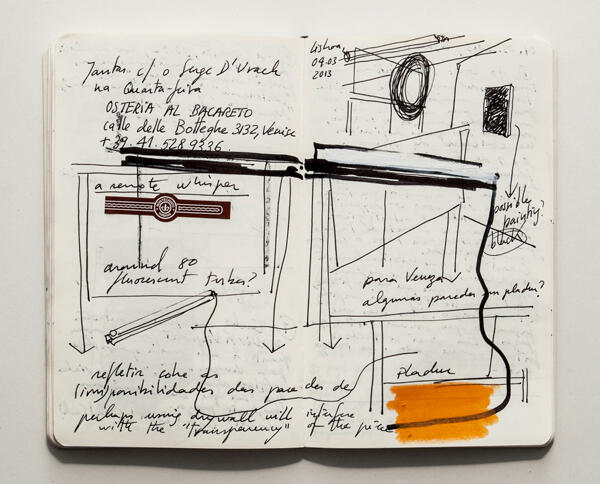 Jantar c/ o Serge D'Urach
na Quarta-feira
OSTERIA AL BACARETO
calle delle Botteghe 3132, Venise
+39.41.5289336.
a remote whisper
around 80
fluorescent tubes?
refletir sobre as
(im)possibilidades das paredes de
perhaps using drywall will interfere
with the "transparency" of the piece
Lisboa,
09.03
2013
possible
painting?
black
para Veneza
algumas paredes em pladur?
Pladur